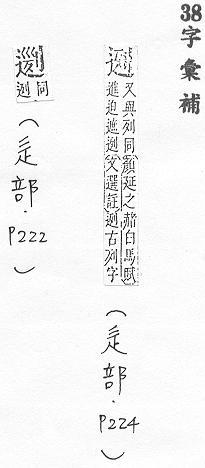 38字彙補
又與列同顏延之赭白馬賦
進迫遮迾文選註迾古列字
(辵部.P224)
同
迾
(辵部.P222)